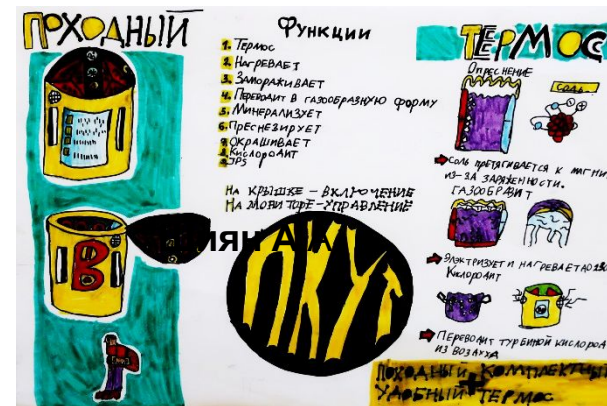 ПОХОДНЫЙ
Функции
1. Термос
2. Нагревает
3. Замораживает
4. Переводит в газообразную форму
5. Минерализует
6. Преснезирует
7. Окрашивает
8. Кислородит
9. JPS
На крышке – включение
На мониторе – управление
В
ПКУТ
ТЕРМОС
Опреснение
соль
Соль претягивается к магни
из-за заряженности.
газообразит
Электризует и нагревает до
Кислородит
Переводит турбиной кислород
из воздуха
Походный комплектный
удобный термос